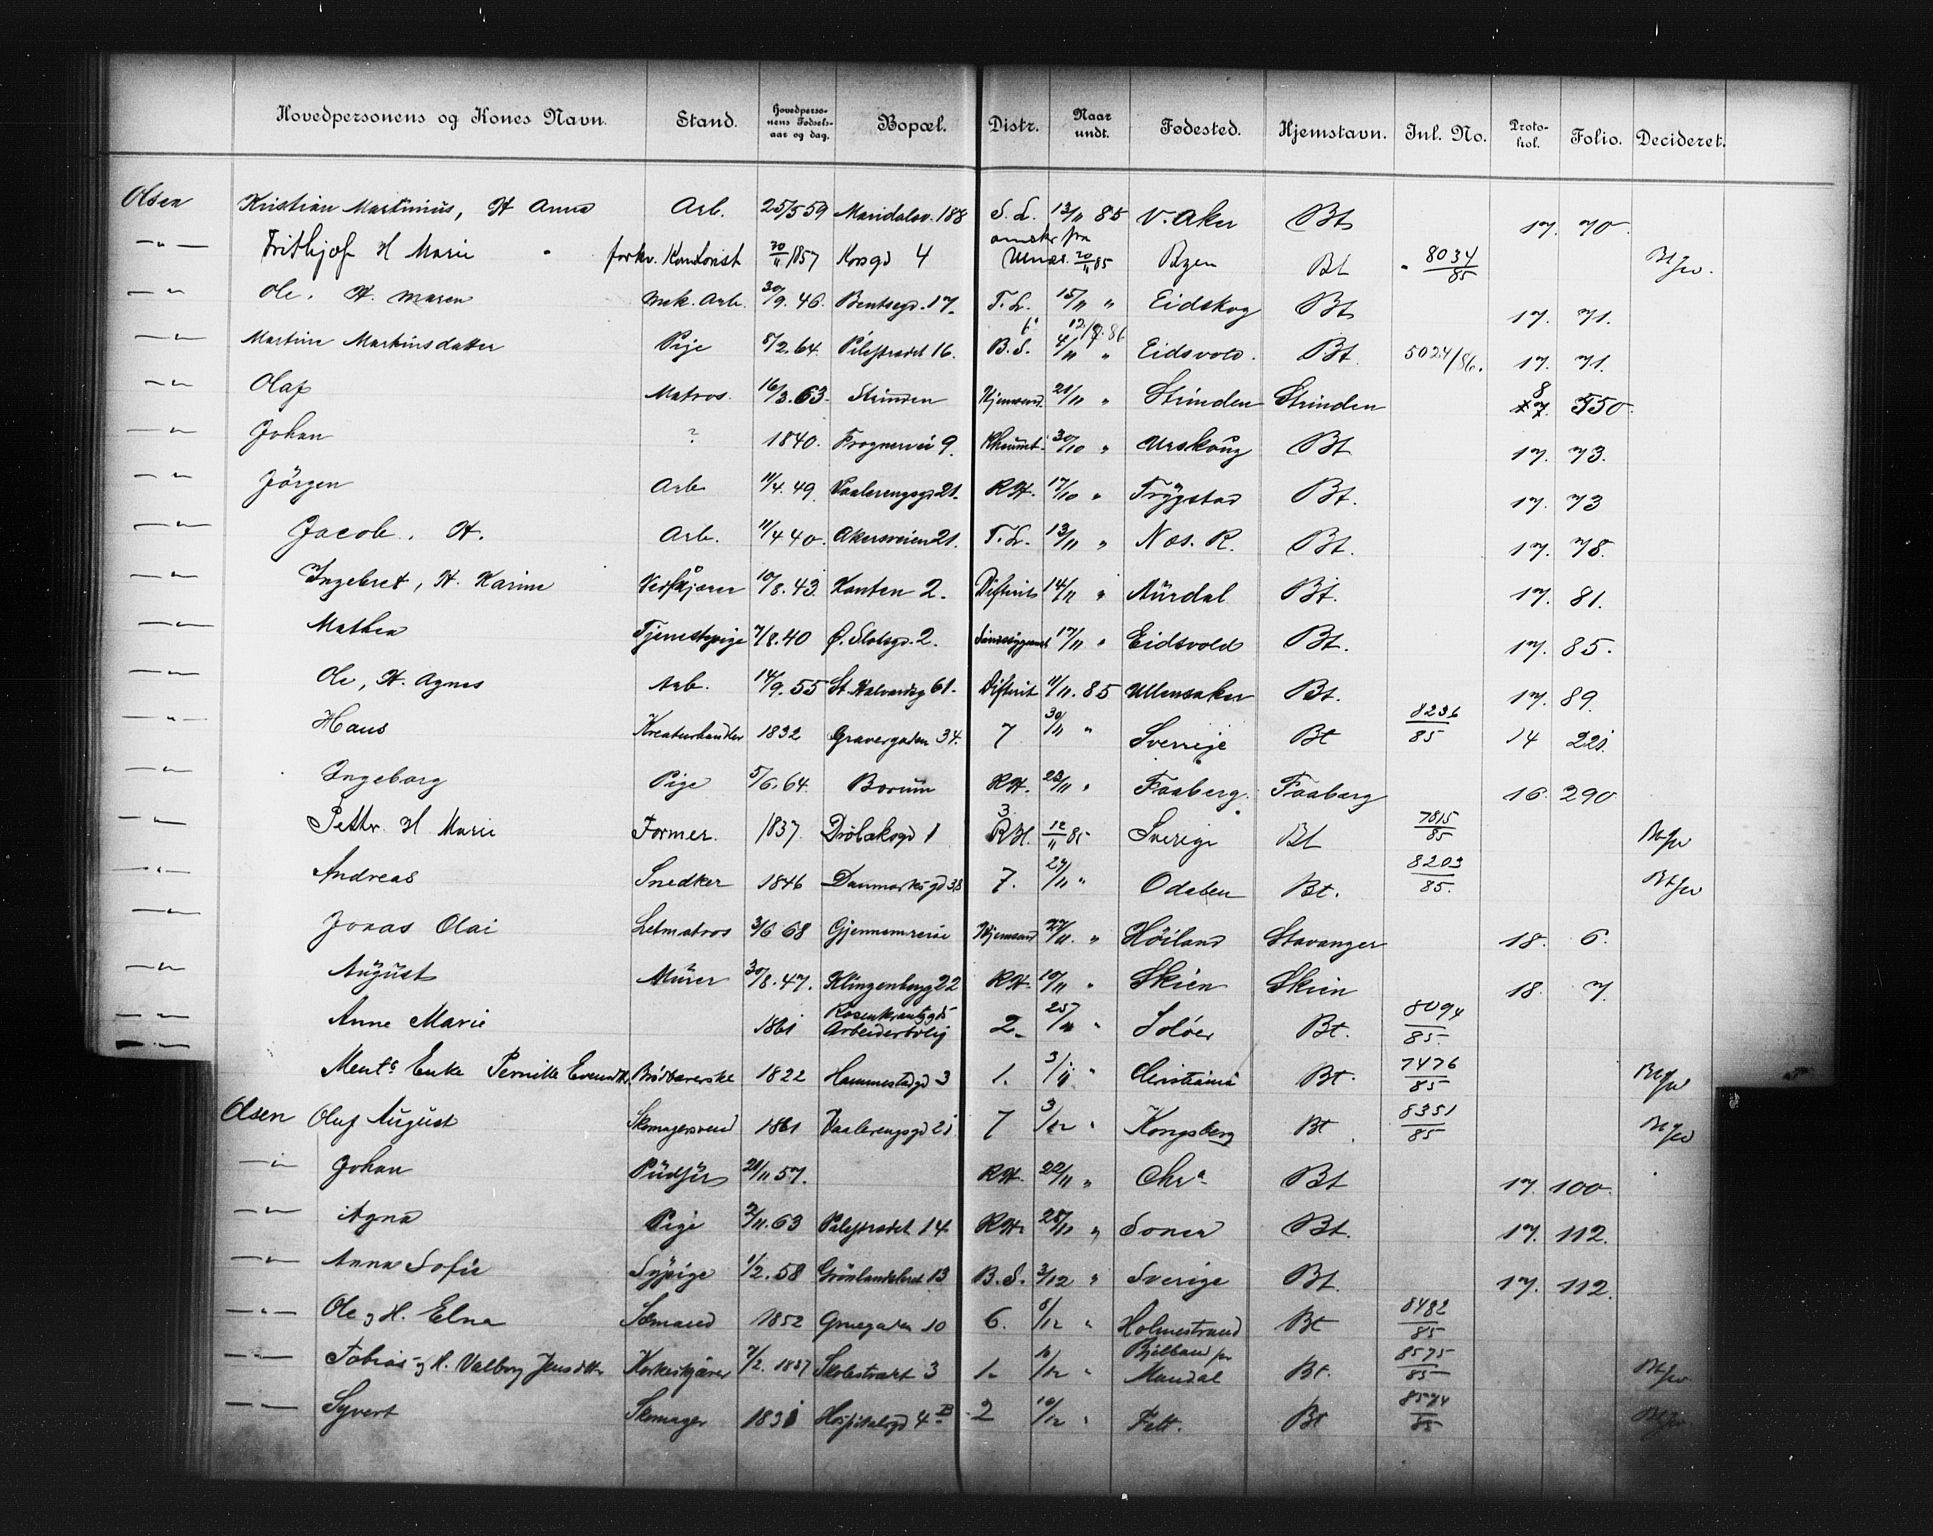 Hovedpersonens og Kones Navn. Stand. Hovedpersonens Fødselsaar og dag. Bopæl. Distr. Naar undt. Fødested. Hjemstavn. Inl. No. Protokol. Folio. Decideret.
Olsen Kristian Martinius, H Anna Arb. 25/5 59 Maridalsv. 188 S. L. 13/11 85 V. Aker Bt 17. 70.
—"— Frithjof H Marie forhv. Kontorist 20/11 1857 Korsgd 4 20/11 85 Bgen Bt 8034/85
—"— Ole. H. Maren Mek. Arb. 30/9. 46. Bentsegd. 17. T. L. 15/11 " Eidskog Bt 17. 71.
—"— Martine Martinsdatter Pige 8/2. 64. Pilestrædet 16. B. S. 4/11 " 12/7. 86 Eidsvold. Bt. 5024/86. 17. 71.
—"— Olaf Matros. 16/3. 63. Strinden Hjemsend. 21/11 " Strinden Strinden 8 550.
—"— Johan ? 1840. Frognervei 9. 30/10 " Urskoug Bt 17. 73.
—"— Jörgen Arb 11/4. 49. Vaalerengsgd 21. RH. 17/10 " Trygstad Bt. 17. 73
—"— Jacob. H. Arb. 11/4 40. Akersveien 21. T. L. 13/11 " Næs. R. Bt. 17. 78.
—"— Ingebret, H. Karine Vedskjærer 10/8. 43. Kanten 2. Difterit 14/11 " Aurdal Bt. 17. 81.
—"— Mathea Tjenestepige 7/8. 40 Ø. Slotsgd. 2. Sindssygeanst 17/11 " Eidsvold Bt. 17. 85.
—"— Ole, H. Agnes Arb. 14/9. 55 St. Halvardsg 61. Difterit 11/11. 85 Ullensaker Bt. 17. 89.
—"— Hans Kreaturhandler 1832 Gravergaden 34. 7 30/11 " Sverrige Bt 8236/85 14 221.
—"— Ingeborg Pige 5/6. 64. Bærum RH. 23/11 " Faaberg. Faaberg 16. 290.
—"— Petter H Marie Former. 1837. Drøbaksgd 1 3 RH. 12/11 85 Sverige Bt 7815/85
—"— Andreas Snedker 1846 Danmarksgd 38 7. 27/11 " Odalen Bt. 8203/85.
—"— Jonas Olai Letmatros 3/6 68 Gjennemreise Hjemsend 27/11. " Höiland Stavanger 18. 6.
—"— August Murer 30/8. 47. Klingenbergg 22 RH. 10/11 " Skien Skien 18. 7.
—"— Anne Marie 1861 Rosenkrantzgd Arbeiderbolig 2. 25/11 " Soløer Bt. 8094/85
—"— Ment. Enke Pernille Brödbærerske 1822 Hammerstadgd 3 1. 3/11 " Christiania Bt. 7476/85
Olsen Oluf August Skomagersvend 1861 Vaalerengsgd 21 7 3/12 " Kongsberg Bt 8351/85
—"— Johan Pudser 21/11 57. RH. 22/11 " Chra Bt 17. 100.
—"— Agna Pige 2/11. 63 Pilestrædet 14. RH. 25/11 " Soner Bt. 17. 112.
—"— Anna Sofie Sypige 1/2. 58 Grönlandsleret 13 B. S. 3/12 " Sverige Bt. 17. 112.
—"— Ole & H. Elna Sømand 1852 Gruegaden 10 6. 8/12 " Holmestrand Bt 8482/85
—"— Tobias & H. Valborg Jensdtr Korkeskjærer 7/2. 1837 Skolestræt 3 1. 10/12 " Mandal Bt. 8575/85
—"— Syvert Skomager 1831 Hospitalsgd 4 B 2 10/12 " Fett. Bt 8574/85